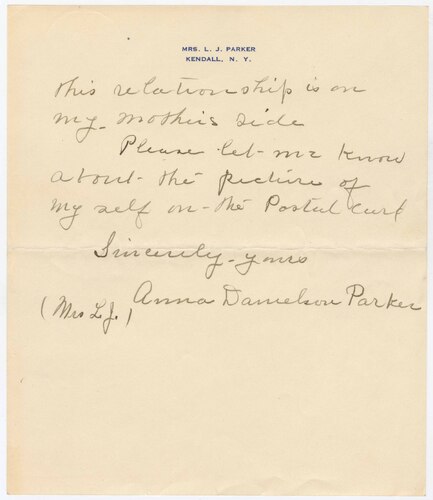 MRS. L. J. PARKER
KENDALL, N. Y.
this relationship is on
my mothers side
Please let me know
about the picture of
my self on the Postal Card
Sincerely yours
(Mrs L.J.) Anna Danielson Parker